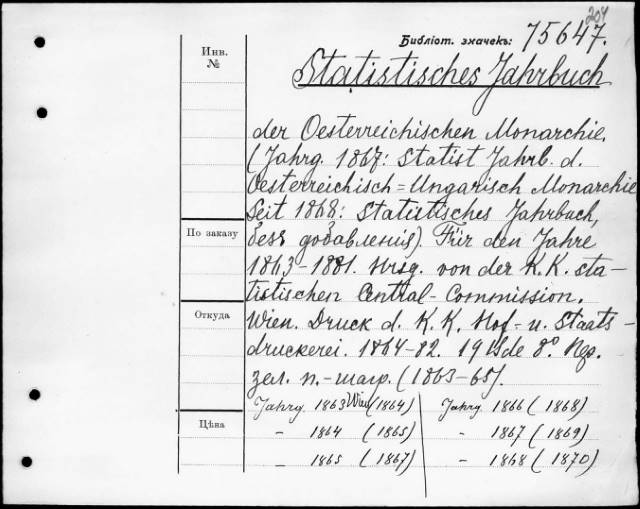 204
Библіот. значекъ: 75647.
Инв.
№
Statistisches Jahrbuch
der Oesterreichischen Monarchie.
(Jahrg. 1867: Statist Jahrb. d.
Oesterreichisch=Ungarisch Monarchie
Seit 1868: Statistisches Jahrbuch,
По заказу
безъ добавленія). Für den Jahre
1863-1881. Hrsg. von der K.K. sta-
tistischen Central-Commission.
Откуда
Wien. Druck d. K.K. Hof- u. Staats-
druckerei. 1864-82. 19 Bde 8º. Пер.
зел. п.-шагр. (1863-65).
Цѣна
Jahrg. 1863 Wien (1864) Jahrg. 1866 (1868)
- 1864 (1865) - 1867 (1869)
- 1865 (1867) - 1868 (1870)